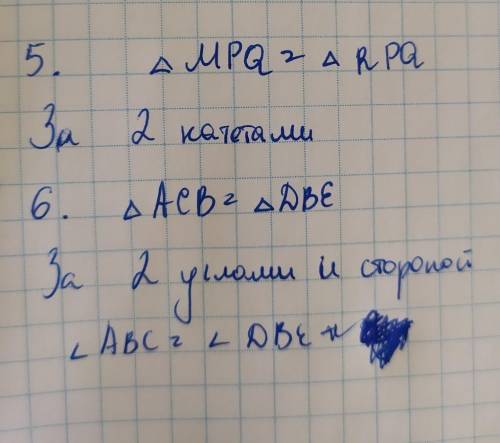 5. △ MPQ = △ RPQ
За 2 катетами
6. △ ACB = △ DBE
За 2 углами и стороной
∠ ABC = ∠ DBE